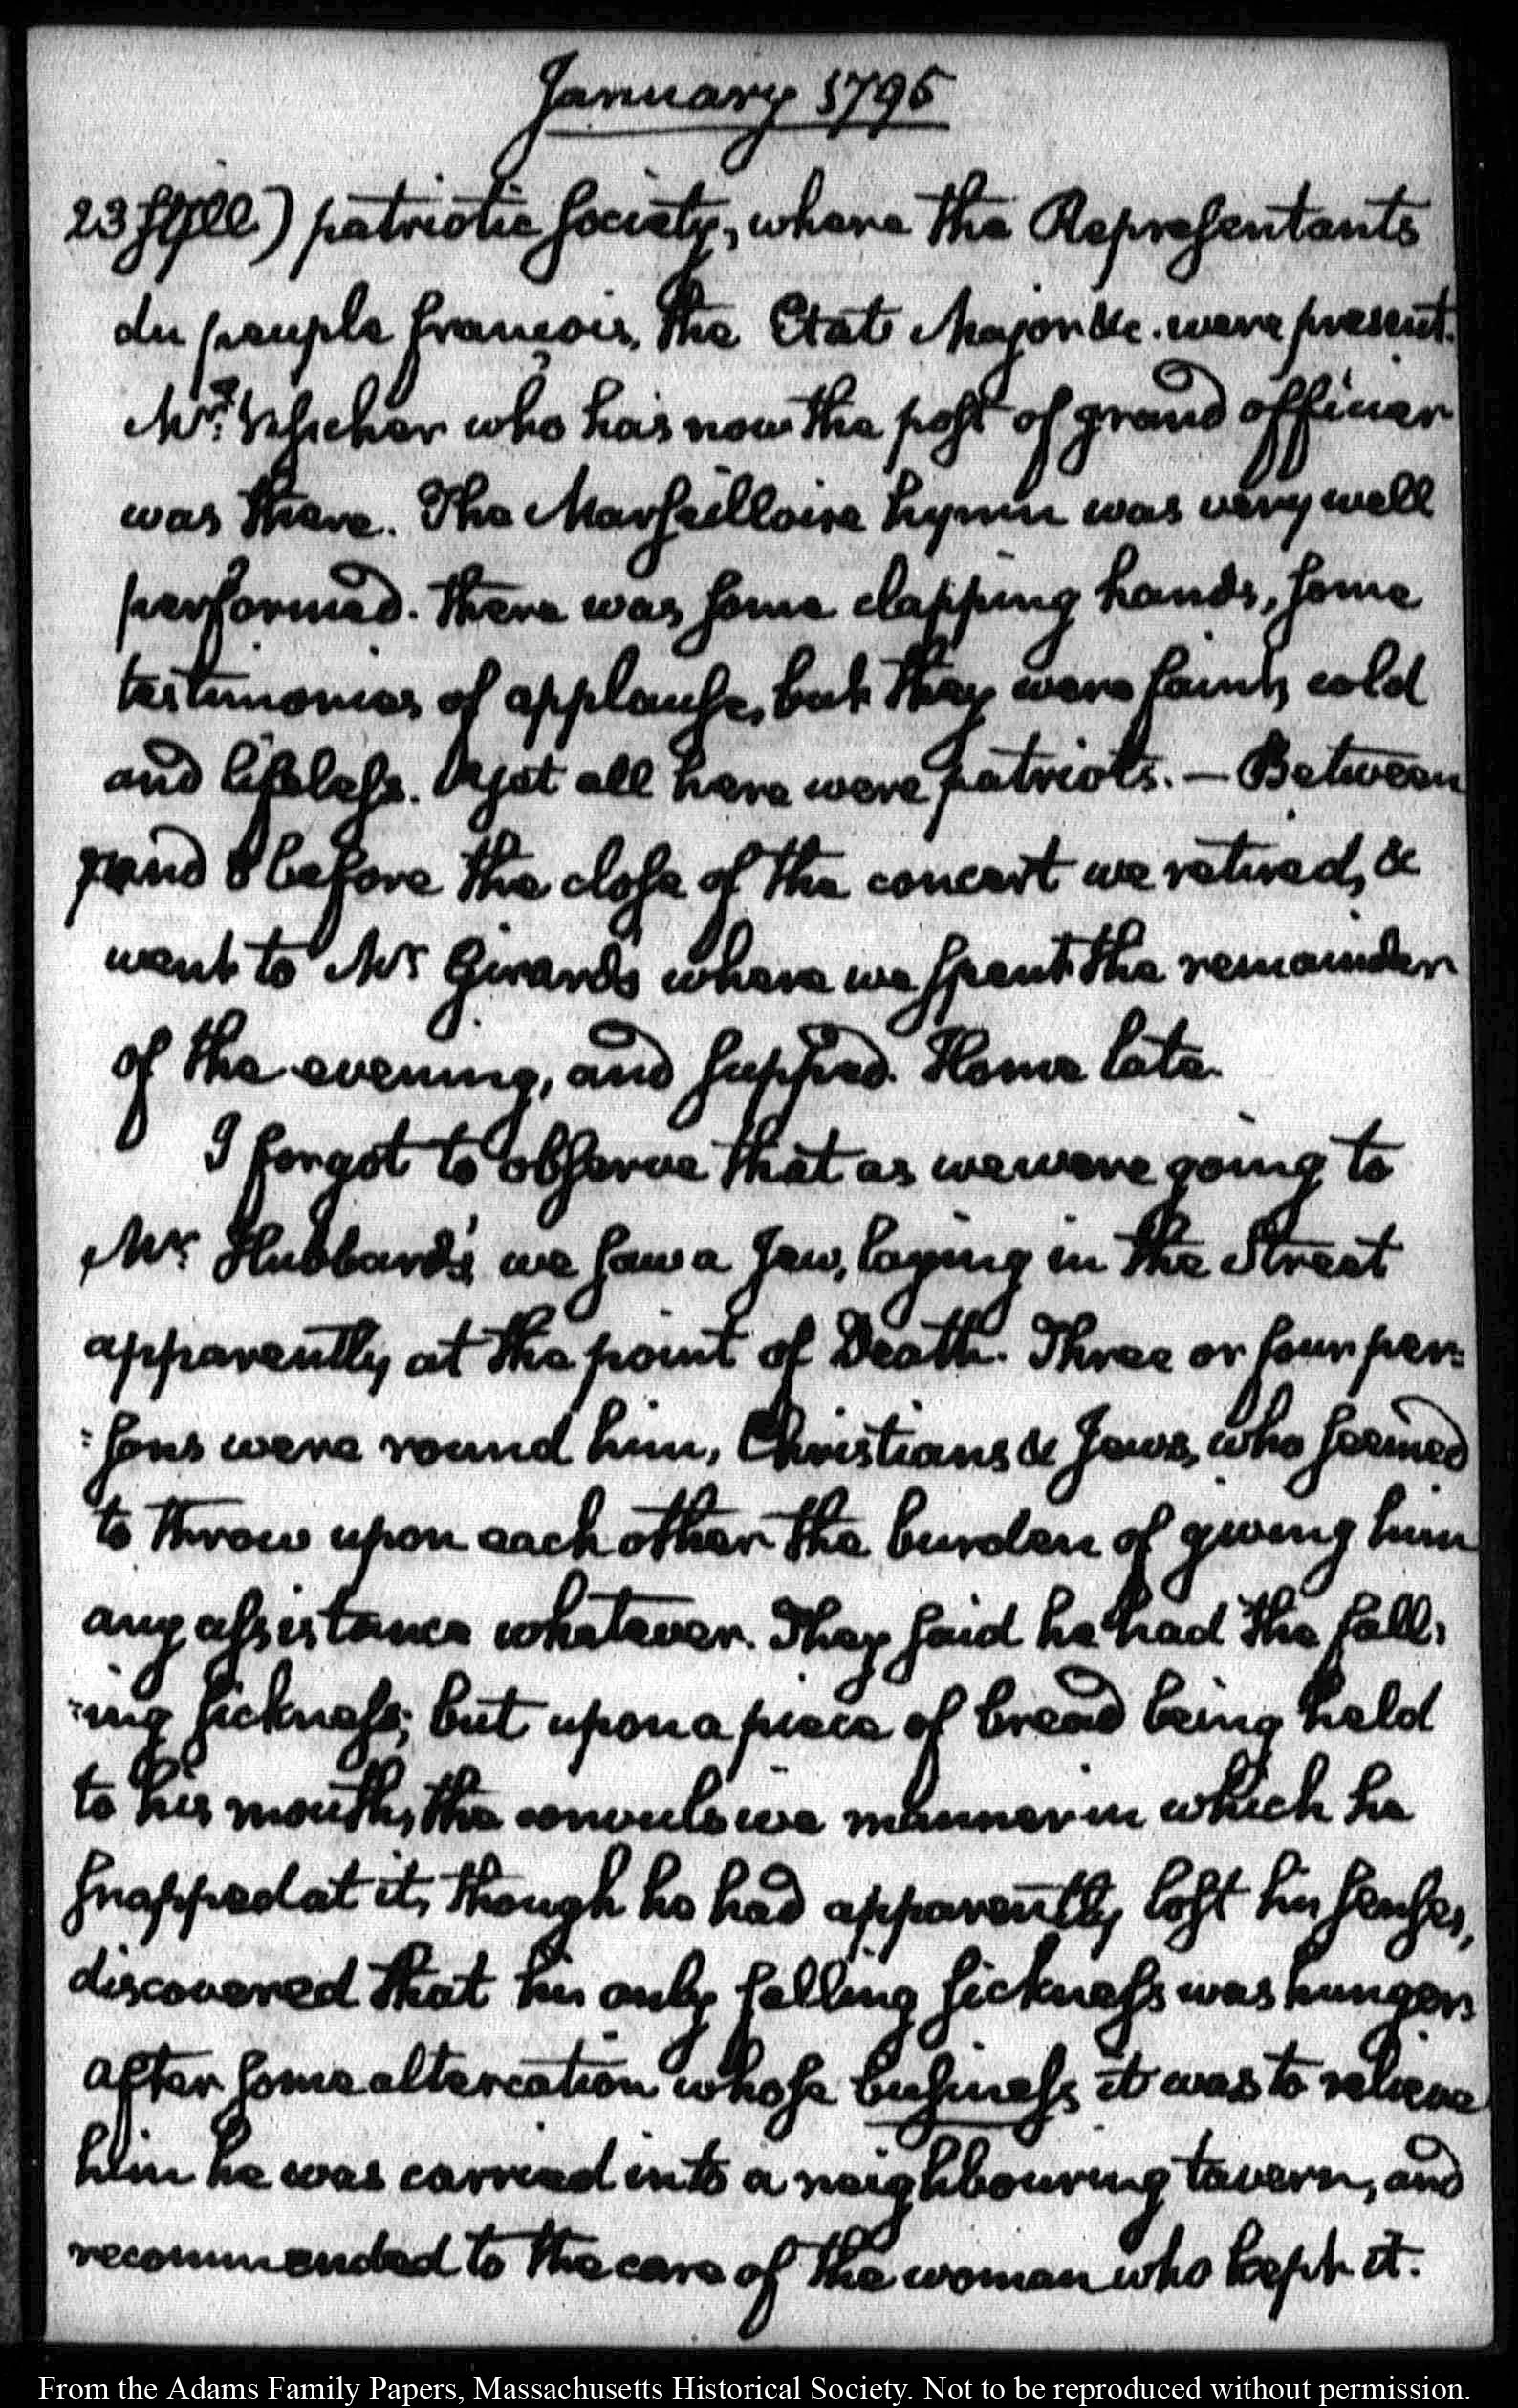 January 1795
23 patriotic Society, where the Representants
du peuple françois, the Etat Major &c. were present.
Mr. Visscher who has now the post of grand officier
was there. The Marseilloise hymn was very well
performed. there was some clapping hands, some
testimonies of applause, but they were faint, cold
and lifeless. Yet all here were patriots. — Between
7 and 8 before the close of the concert we retired, &
went to Mr Girard's where we spent the remainder
of the evening, and supped. Home late.
I forgot to observe that as we were going to
Mr. Hubbard's we saw a Jew, laying in the Street
apparently at the point of Death. Three or four per=
=sons were round him, Christians & Jews, who seemed
to throw upon each other the burden of giving him
any assistance whatever. They said he had the fall=
=ing sickness; but upon a piece of bread being held
to his mouth, the convulsive manner in which he
snapped at it, though he had apparently lost his senses,
discovered that his only falling sickness was hunger
after some altercation whose business it was to relieve
him he was carried into a neighbouring tavern, and
recommended to the care of the woman who kept it.
From the Adams Family Papers, Massachusetts Historical Society. Not to be reproduced without permission.